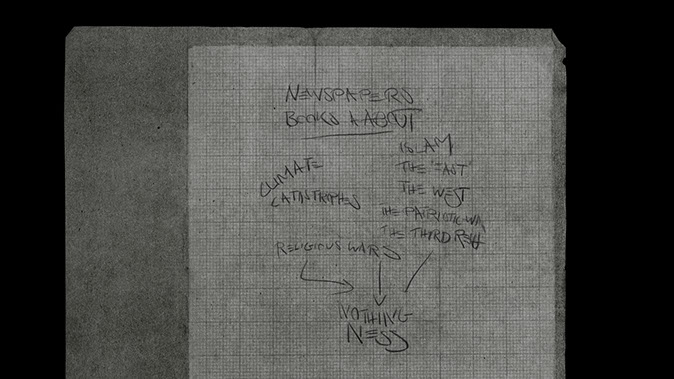 NEWSPAPERS
BOOKS & ABOUT
CLIMATE
CATASTROPHES
ISLAM
THE "EAST"
THE WEST
THE PATRIOTIC WAR
THE THIRD REICH
RELIGIOUS WARS
NOTHING
NESS